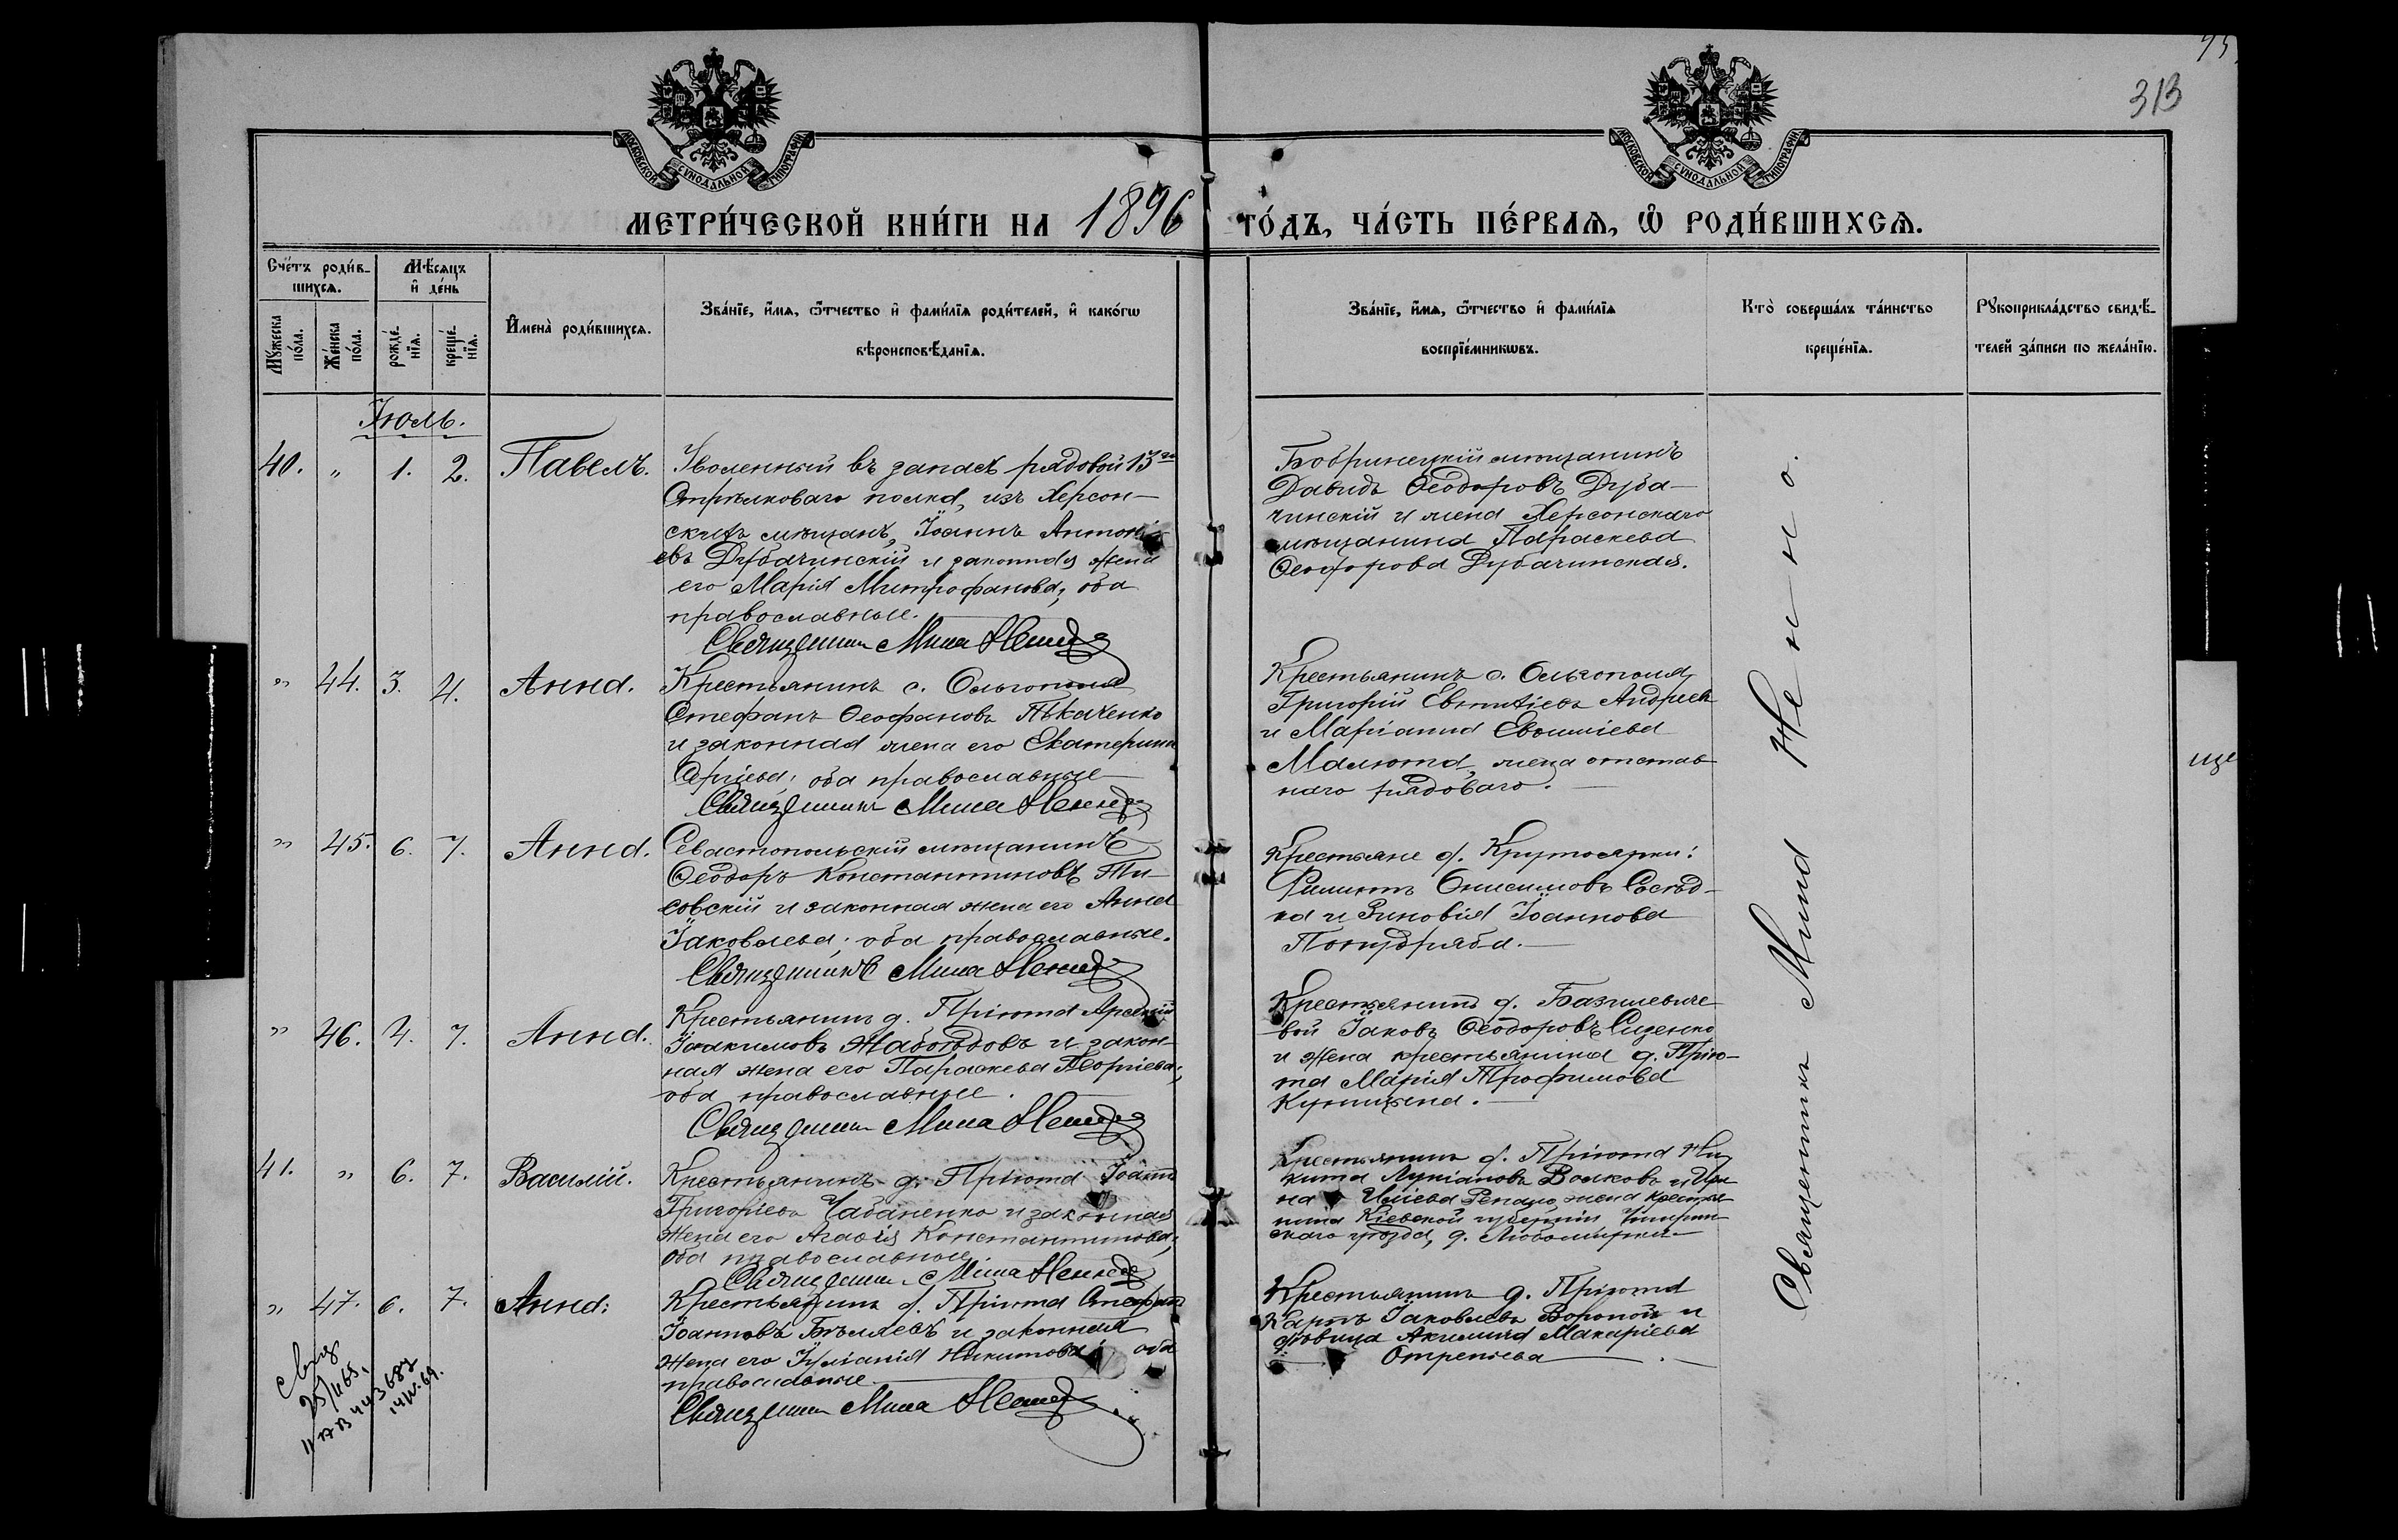 95
313
МОСКОВСКОЙ СѴНОДАЛЬНОЙ ТИПОГРАФІИ
МОСКОВСКОЙ СѴНОДАЛЬНОЙ ТИПОГРАФІИ
МЕТРИ́ЧЕСКОЙ КНИ́ГИ НА 1896 ГО́ДЪ, ЧА́СТЬ ПЕ́РВАѦ, Ѡ҆ РОДИ́ВШИХСѦ.
Сче́тъ роди́в-
шихсѧ.
Мꙋ́жеска
по́ла.
Же́нска
по́ла.
Мѣ́сѧцъ
и҆ де́нь
рожде́-
нїѧ.
креще́-
нїѧ.
И҆мена̀ роди́вшихсѧ.
Зва́нїе, и҆́мѧ, ѻ҆́тчество и҆ фами́лїѧ роди́телей, и҆ како́гѡ
вѣроисповѣ́данїѧ.
Зва́нїе, и҆́мѧ, ѻ҆́тчество и҆ фами́лїѧ
воспрїе́мникѡвъ.
Кто̀ соверша́лъ та́инство
креще́нїѧ.
Рꙋкоприкла́дство свидѣ́-
телей за́писи по жела́нїю.
Іюль.
40. " 1. 2. Павелъ.
Уволенный въ запасъ рядовой 13го
Стрѣлковаго полка, изъ Херсон-
скихъ мѣщанъ, Іоаннъ Антоні-
евъ Дубачинскій и законная жена
его Марія Митрофанова; оба
православные.
Священникъ Мина Ненно
Бобринецкій мѣщанинъ
Давидъ Ѳеодоровъ Дуба-
чинскій и жена Херсонскаго
мѣщанина Параскева
Ѳеодорова Дубачинская.
" 44. 3. 4. Анна.
Крестьянинъ с. Ольгополя
Стефанъ Ѳеофановъ Ткаченко
и законная жена его Екатерина
Сергіева; оба православные
Священникъ Мина Ненно
Крестьянинъ с. Ольгополя
Григорій Андреев
и Маріанна
Малюта, жена отстав-
наго рядоваго.
" 45. 6. 7. Анна.
Севастопольскій мѣщанинъ
Ѳеодоръ Константиновъ Ти-
совскій и законная жена его Анна
Іаковлева; оба православные.
Священникъ Мина Ненно
Крестьяне д. Крутоярки:
Филиппъ Онисимовъ Сосѣд-
ка и Зиновія Іоаннова
" 46. 4. 7. Анна.
Крестьянинъ д. Пріюта
Іоакимовъ Жабоѣдовъ и закон-
ная жена его Параскева Георгіева;
оба православные.
Священникъ Мина Ненно
Крестьянинъ д. Базилевиче-
вой Іаковъ Ѳеодоровъ Сиденко
и жена крестьянина д. Прію-
та Марія Трофимова
Куницына.
41. " 6. 7. Василій.
Крестьянинъ д. Пріюта Іоаннъ
Григоріевъ Чабаненко и законная
жена его Агаѳія Константинова;
оба православные
Священникъ Мина Ненно
Крестьянинъ д. Пріюта Ни-
кита Лукіановъ Волковъ и Ири-
на Иліева жена крестья-
нина Кіевской губерніи, Чигирин-
скаго уѣзда, д. Любомирки
" 47. 6. 7. Анна:
Крестьянинъ д. Пріюта Стефанъ
Іоанновъ Бѣляевъ и законная
жена его Іуліанія Никитова; оба
православные
Священникъ Мина Ненно
Крестьянинъ д. Пріюта
Карпъ Іаковлевъ Вороной и
дѣвица Акилина Макаріева
Отрепіева
Священникъ Мина Ненно.
ще